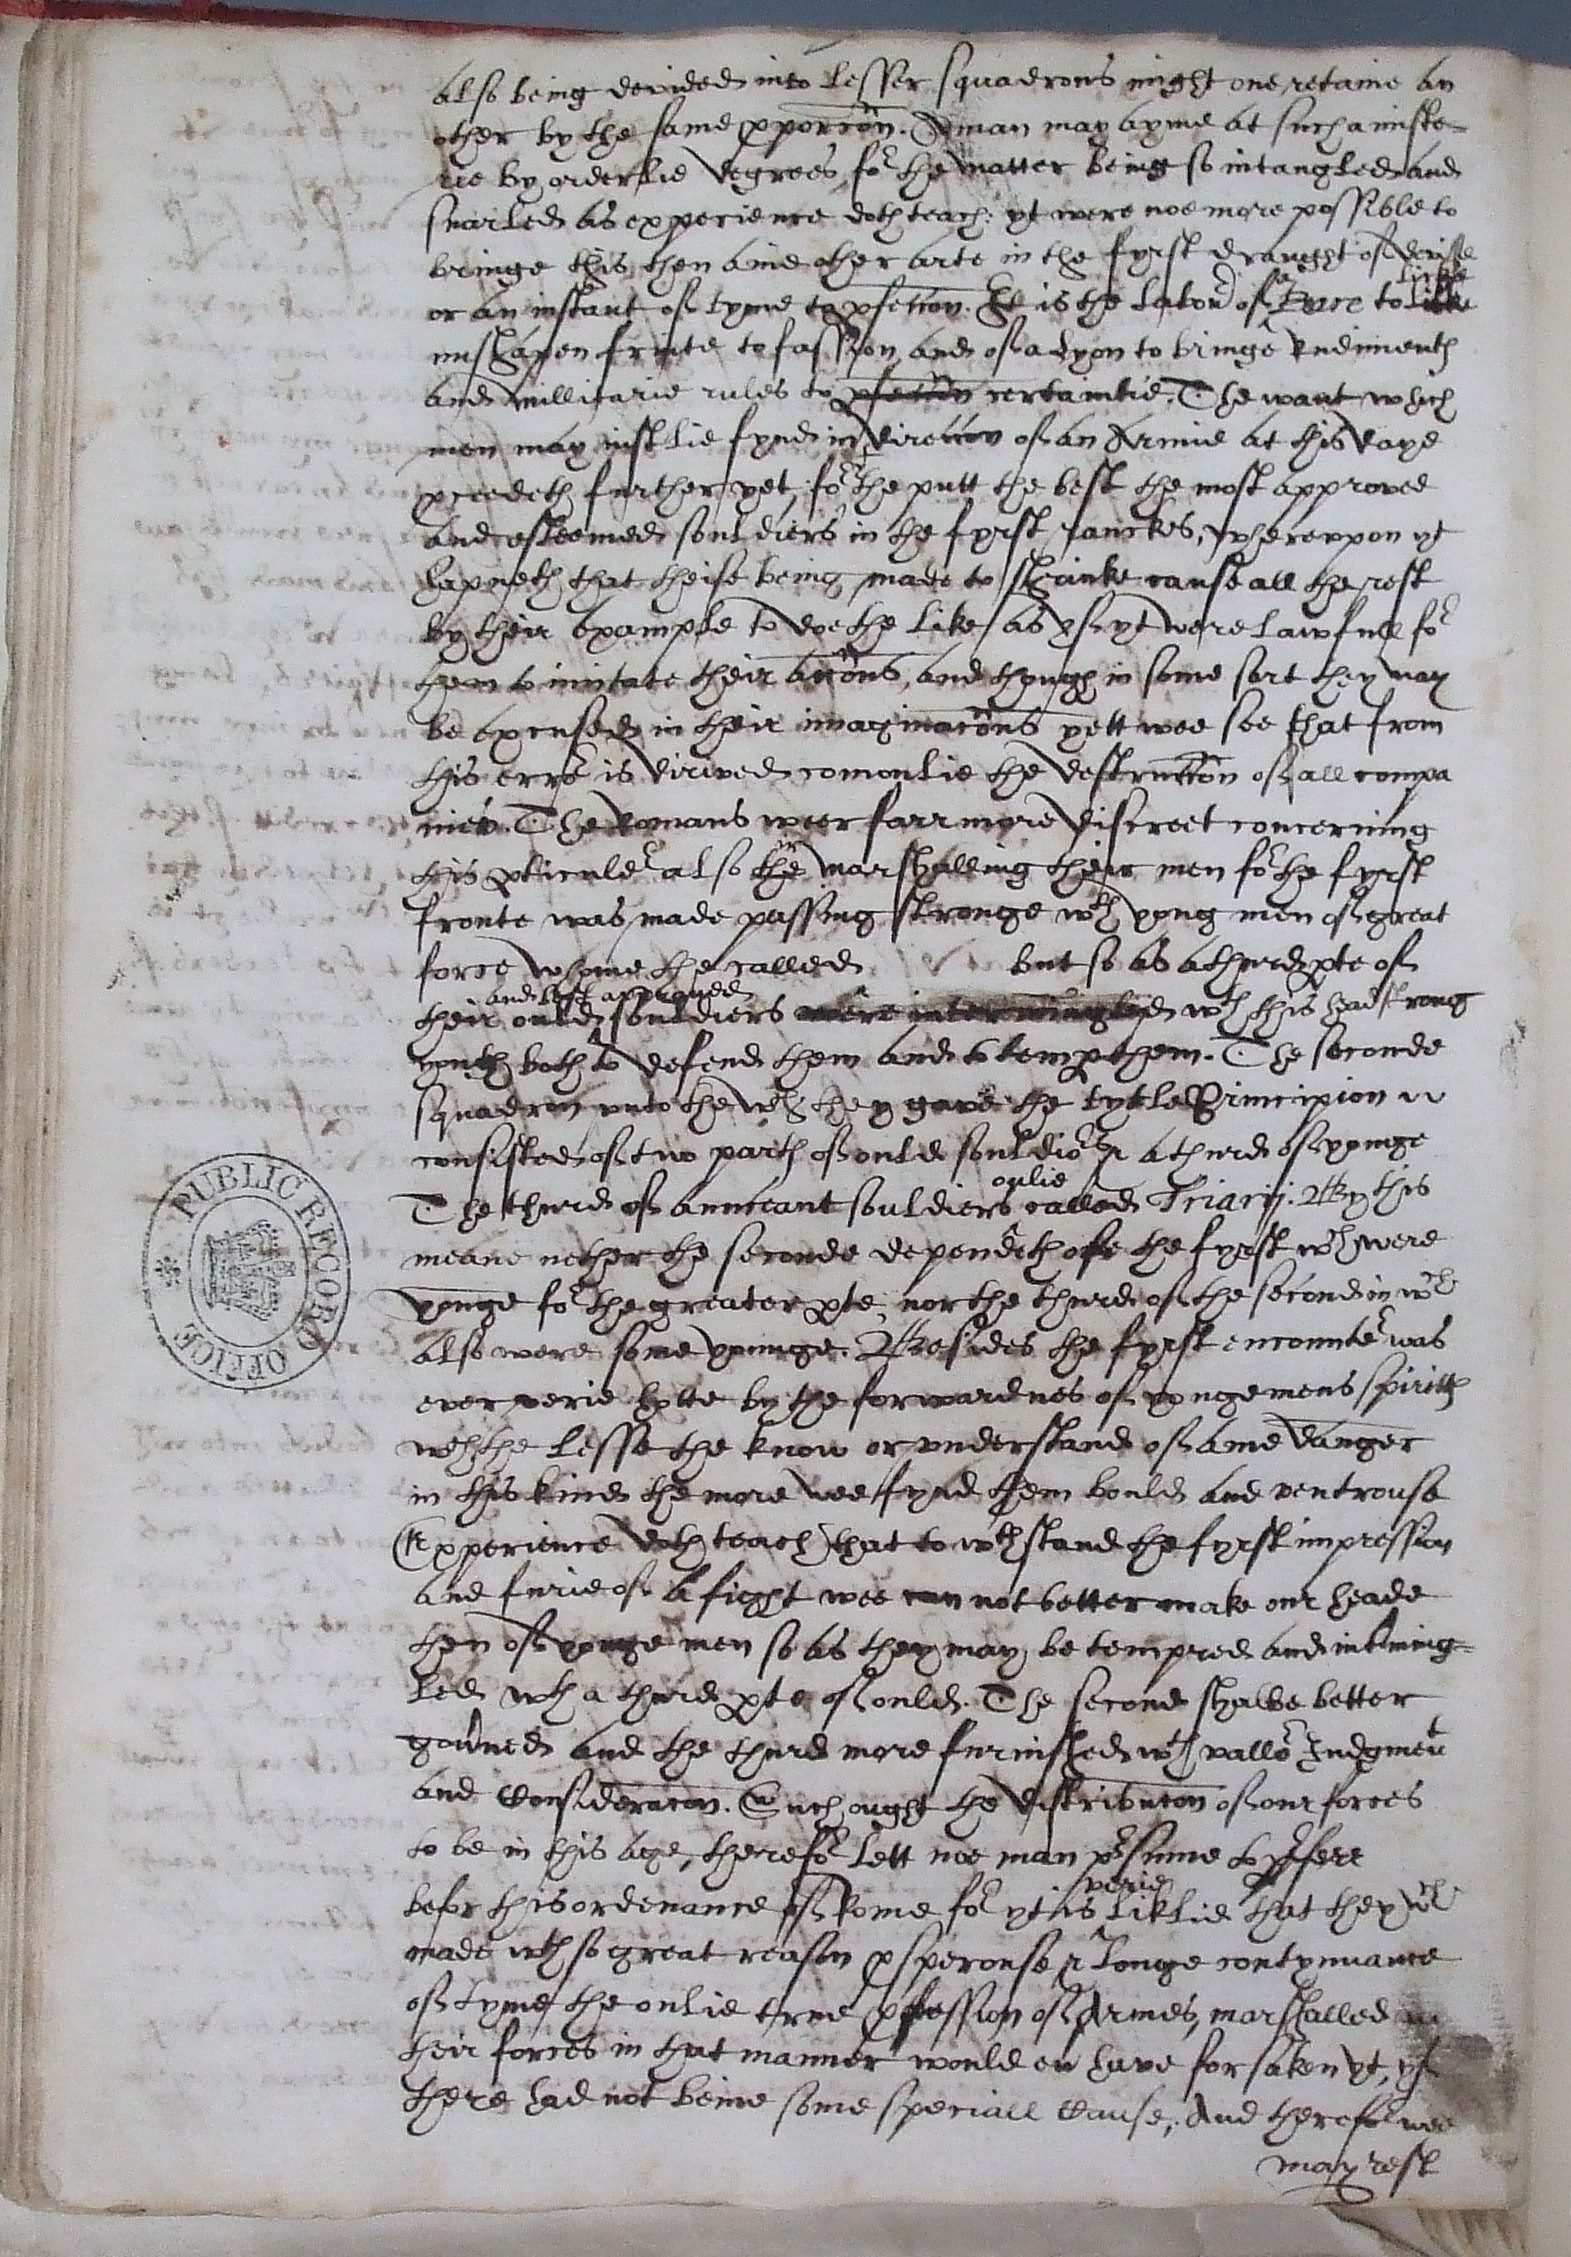 also being devided into lesser squadrons might one retaine an
other by the same pporcon. A man may ayme at such a miste
rie by orderlie degrees, for the matter being so intangled and
snarled as experience doth teach: yt were noe more possible to
bringe this, then anie other arte in the fyrst draught of
or an instant of tyme to pfeccon. It is the labour of a Beare to licke
mishapen fruite to fassion, and of a Lyon to bringe rudimentes
and millitarie rules to pfeccon certaintie. The want which
men may iustlie fynd in direccon of an Armie at this daye
pceedeth further yet, for the putt the best the most approved
and esteemed souldiers in the fyrst ranckes, whereuppon yt
hapneth that theise being made to shrinke cause all the rest
by their example to doe the like as yf yt were lawfull for
them to imitate their accons, and though in some sort they may
be excused in their imaginacons yett wee see that from
this error is dirived comonlie the destruccon of all compa
nies. The Romans weer farr more discreet concerning
this pticuler also the in marshalling their men for the fyrst
fronte was made passing stronge wth yong men of great
force whome the called but so as a thurd pte of
and best approued
their ould souldiers were intermingled wth this headstrong
youth both to defend them and to temper them. The seconde
squadron unto the wch they gave the tytle Principion
consisted of two partes of ould souldiors & a thurd of yonge
onlie
The thurd of aunceant souldiers called Triarij. By this
meane nether the seconde dependeth of the fyrst wch were
yonge for the greater pte, nor the thurd of the second in wch
also were some younge. Besides the fyrst encounter was
ever verie hotte by the forwardnes of yonge mens spirittes
wch the lesse the know or understand of anie danger
in this kind the more wee fynd them bould and ventrouse
(Experience doth teach) that to wthstand the fyrst impression
and furie of a fight wee can not better make our heade
then of yonge men so as they may be tempred and intming=
led wth a thurd pte of ould. The second shalbe better
gouned and the thurd more furnished wth vallor Iudgment
and Consideracon. Such ought the distribucon of our forces
to be in this age, therefor lett noe man psume to pfere
verie
befor this ordenance of Rome for yt is liklie that they wch
made wth so great reason psperouse & longe contynuance
of tyme the onlie true pfession of Armes, marshalled
their forces in that manner would ev have forsaken yt, yf
there had not beine some speciall Cause, And therefor wee
may rest
PUBLIC RECORD OFFICE